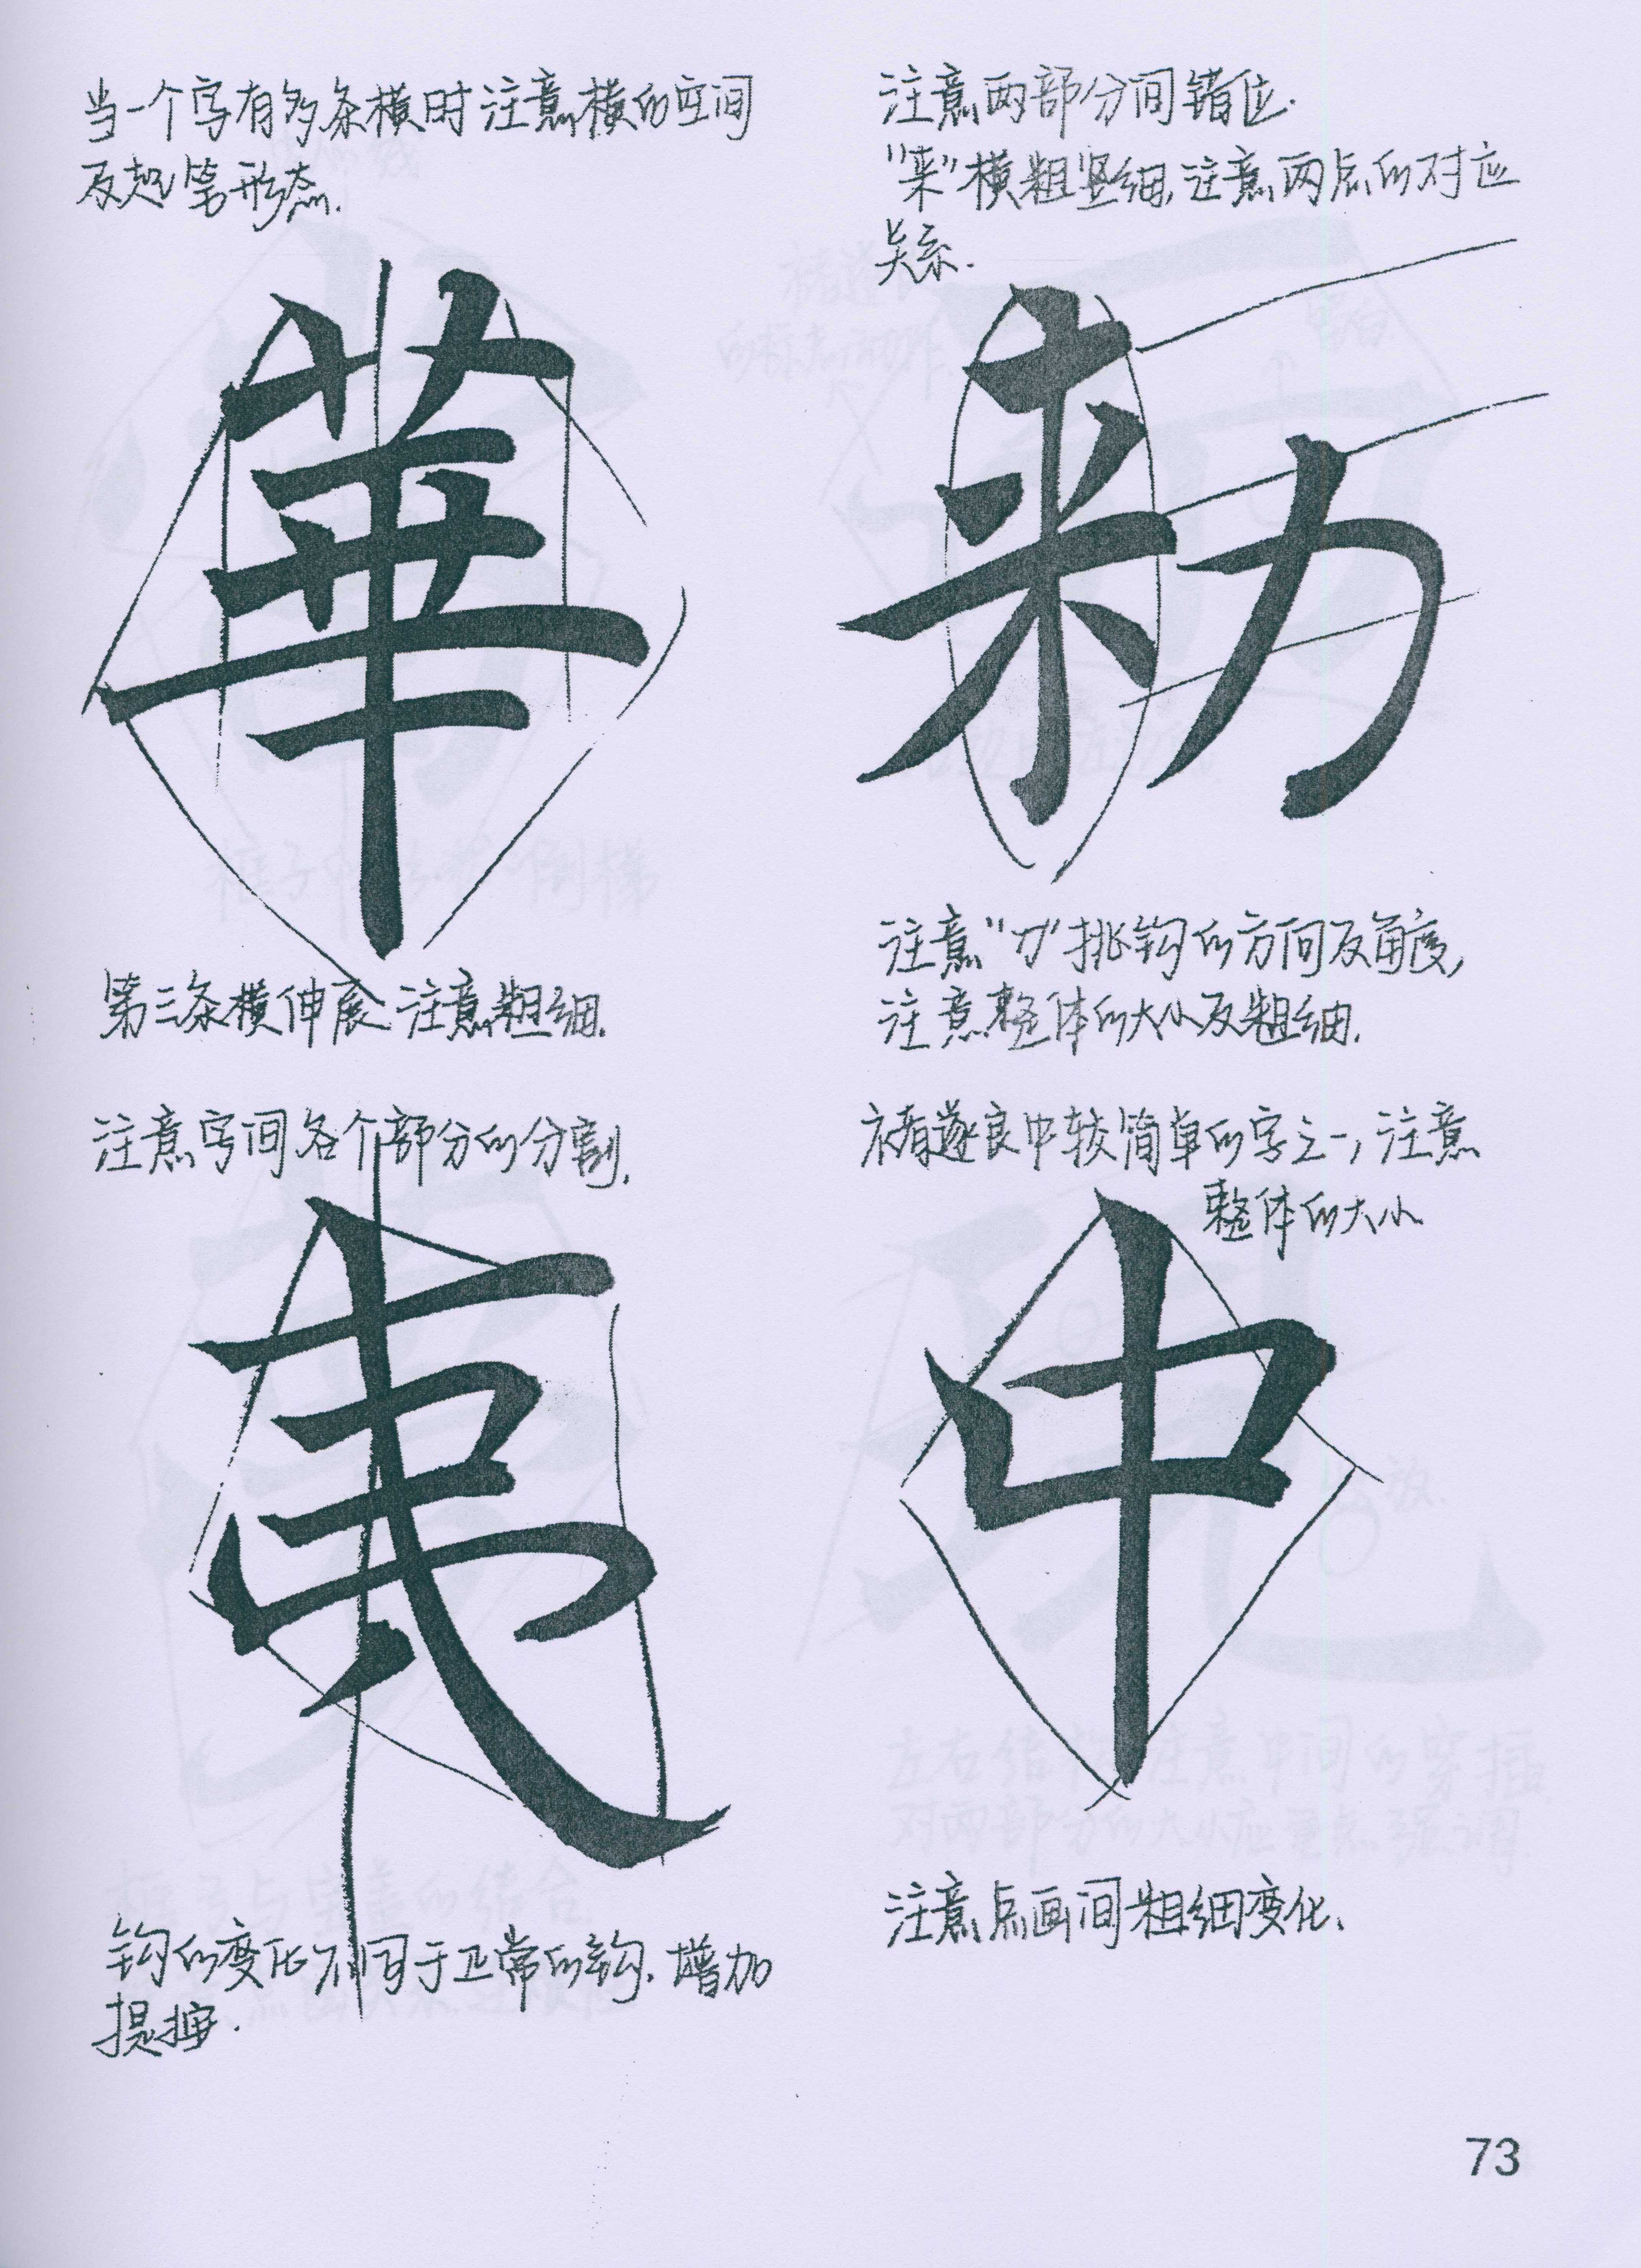 当一个字有多条横时注意横的空间
及起笔形态.
華
第三条横伸展 注意粗细.
注意两部分间错位.
"来"横粗竖细,注意两点的对应
关系.
勑
注意"力"挑钩的方向及角度,
注意整体的大小及粗细.
注意字间各个部分的分割.
夷
钩的变化不同于正常的钩.增加
提按.
褚遂良中较简单的字之一,注意
整体的大小
中
注意点画间粗细变化.
73